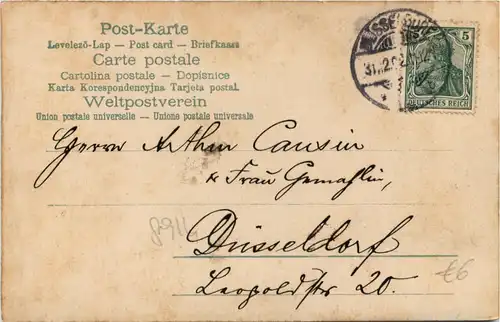 Post-Karte
Levelező-Lap — Post card — Briefkaart
Carte postale
Cartolina postale — Dopisnice
Karta Korespondencyjna Tarjeta postal.
Weltpostverein
Union postale universelle — Unione postale universale
5
DEUTSCHES REICH
Herrn Arthur Causin
& Frau Gemahlin,
Düsseldorf
Leopoldstr 20.
8911
€6